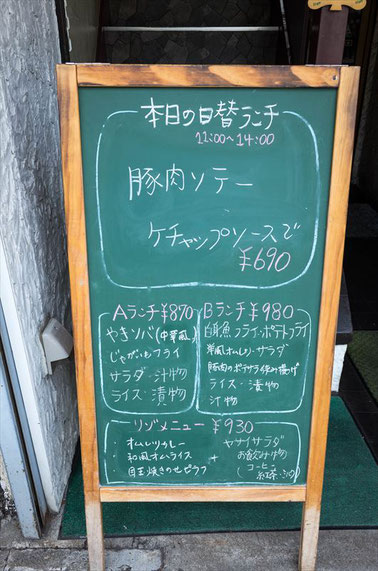 本日の日替ランチ
11:00〜14:00
豚肉ソテー
ケチャップソースで
¥690
Aランチ¥870
やきソバ(中華風)
じゃがいもフライ
サラダ・汁物
ライス・漬物
Bランチ¥980
白身魚フライ・ポテトフライ
洋風オムレツ・サラダ
豚肉のポテサラ
ライス・漬物
汁物
リゾメニュー ¥930
オムレツカレー
和風オムライス
目玉焼きのせピラフ
+
ヤサイサラダ
お飲み物
(コーヒー
紅茶